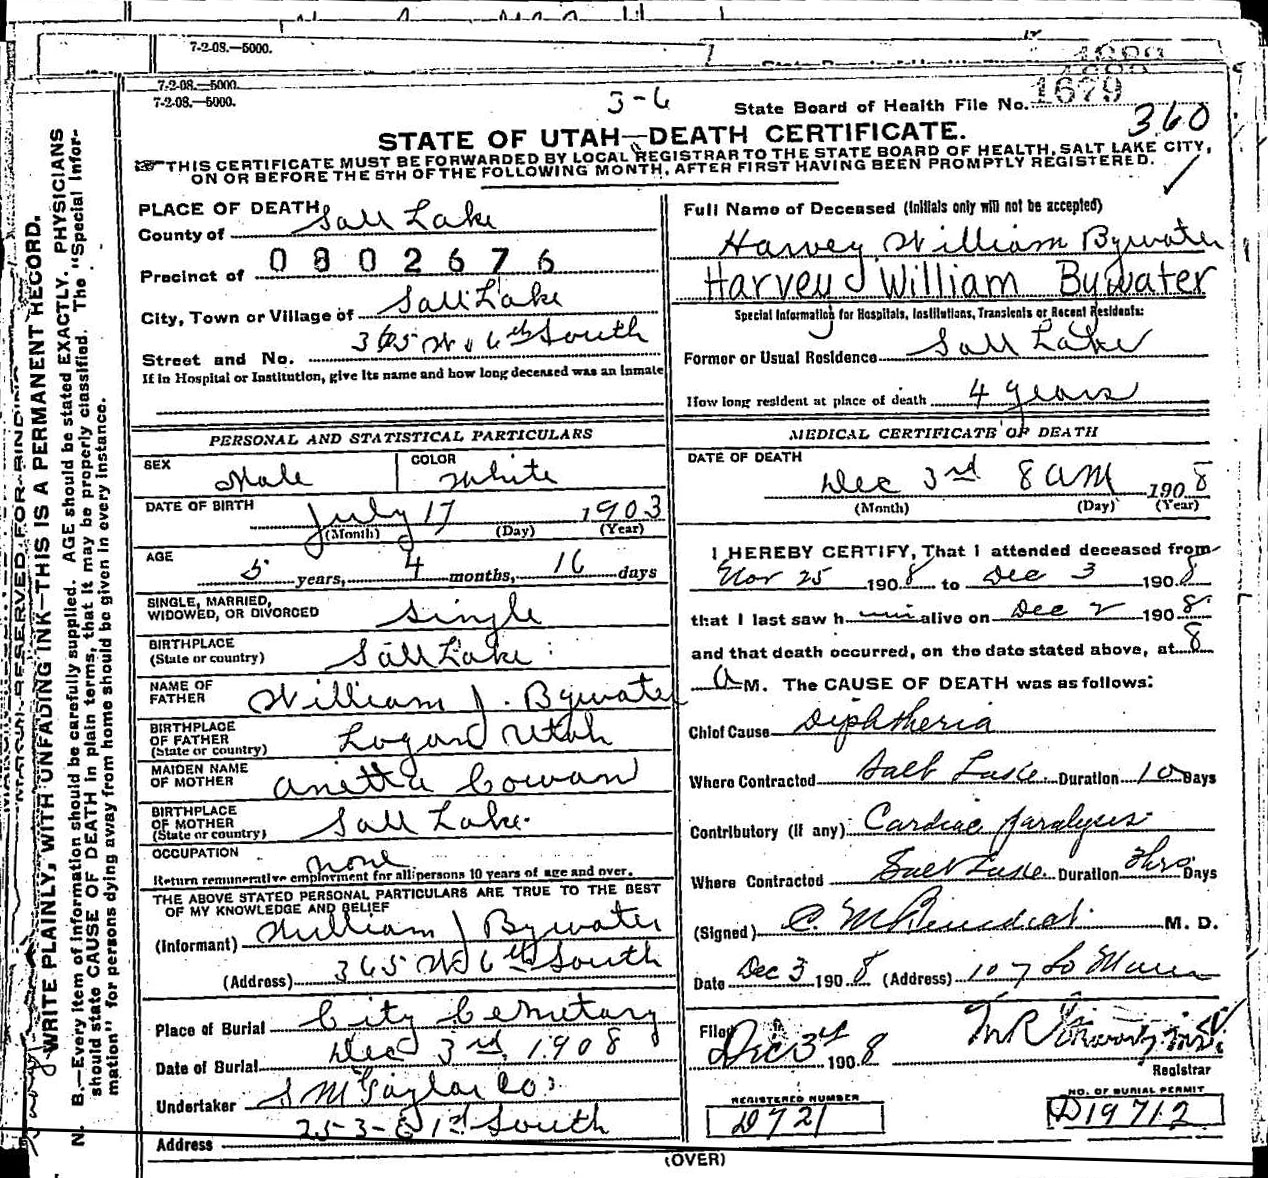 7-2-08.—5000.
7-2-08.—5000.
7-2-08.—5000.
3-6
State Board of Health File No. 1679
360
STATE OF UTAH—DEATH CERTIFICATE.
THIS CERTIFICATE MUST BE FORWARDED BY LOCAL REGISTRAR TO THE STATE BOARD OF HEALTH, SALT LAKE CITY,
ON OR BEFORE THE 5TH OF THE FOLLOWING MONTH, AFTER FIRST HAVING BEEN PROMPTLY REGISTERED.
WRITE PLAINLY, WITH UNFADING INK—THIS IS A PERMANENT RECORD.
N. B.—Every item of information should be carefully supplied. AGE should be stated EXACTLY. PHYSICIANS
should state CAUSE OF DEATH in plain terms, that it may be properly classified. The "Special Infor-
mation" for persons dying away from home should be given in every instance.
PLACE OF DEATH
County of Salt Lake
Precinct of 0802676
City, Town or Village of Salt Lake
Street and No. 365 W 6th South
If in Hospital or Institution, give its name and how long deceased was an inmate
PERSONAL AND STATISTICAL PARTICULARS
SEX Male COLOR White
DATE OF BIRTH July 17 1903
(Month) (Day) (Year)
AGE 5 years, 4 months, 16 days
SINGLE, MARRIED,
WIDOWED, OR DIVORCED Single
BIRTHPLACE
(State or country) Salt Lake
NAME OF
FATHER William J. Bywater
BIRTHPLACE
OF FATHER
(State or country) Logan Utah
MAIDEN NAME
OF MOTHER Anetta Cowan
BIRTHPLACE
OF MOTHER
(State or country) Salt Lake
OCCUPATION none
Return remunerative employment for all persons 10 years of age and over.
THE ABOVE STATED PERSONAL PARTICULARS ARE TRUE TO THE BEST
OF MY KNOWLEDGE AND BELIEF
(Informant) William J Bywater
(Address) 365 W 6th South
Place of Burial City Cemetary
Date of Burial Dec 3rd 1908
Undertaker S M Taylor Co.
Address 25-3-E 1st South
Full Name of Deceased (Initials only will not be accepted)
Harvey William Bywater
Harvey William Bywater
Special Information for Hospitals, Institutions, Transients or Recent Residents:
Former or Usual Residence Salt Lake
How long resident at place of death 4 years
MEDICAL CERTIFICATE OF DEATH
DATE OF DEATH
Dec 3rd 8 AM 1908
(Month) (Day) (Year)
I HEREBY CERTIFY, That I attended deceased from
Nov 25 1908 to Dec 3 1908
that I last saw him alive on Dec 2 1908
and that death occurred, on the date stated above, at 8
A M. The CAUSE OF DEATH was as follows:
Chief Cause Diphtheria
Where Contracted Salt Lake Duration 10 Days
Contributory (if any) Cardiac paralysis
Where Contracted Salt Lake Duration 3 hrs Days
(Signed) C. M. Benedict M. D.
Date Dec 3 1908 (Address) 107 So Main
Filed Dec 3rd 1908
Registrar
REGISTERED NUMBER
D721
NO. OF BURIAL PERMIT
D19712
(OVER)